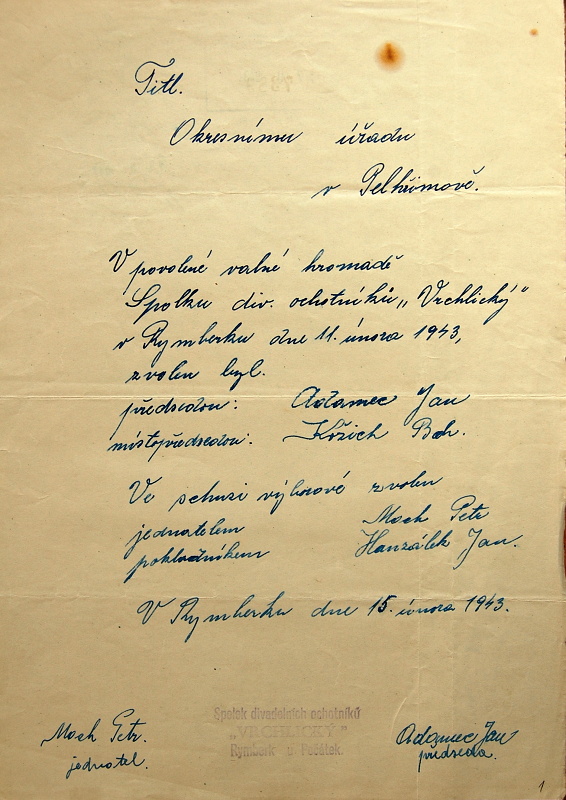 Titl.
Okresnímu úřadu
v Pelhřimově.
V povolené valné hromadě
Spolku div. ochotníků „Vrchlický"
v Rymberku dne 11. února 1943,
zvolen byl.
předsedou: Adamec Jan
místopředsedou: Křžich Boh.
Ve schusi výborové zvolen
jednatelem Moch Petr
pokladníkem Hanzálek Jan.
V Rymberku dne 15. února 1943.
Spolek divadelních ochotníků
„VRCHLICKÝ"
Rymberk u
Moch Petr.
jednatel.
Adamec Jan
předseda.
1